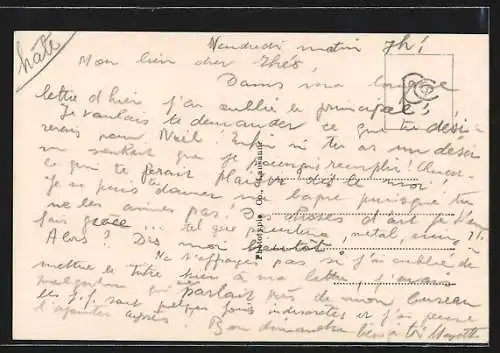 hâte
Vendredi matin 7h!
Mon bien cher Théo,
Dans ma longue
lettre d'hier j'ai oublié le principal!
Je voulais te demander ce que tu dési-
rerais pour Noël! Enfin si tu as un désir
ou souhait que je pourrais remplir!
ce qui te ferait plaisir dis le moi!
Je ne puis te donner une pipe puisque tu
ne les aimes pas! Des choses d'art je
fais grâce... tel que peinture, métal,
Alors? Dis moi bientôt
Ne t'effrayes pas si j'ai oublié de
mettre le titre hier à ma lettre, j'avais
quelqu'un qui parlait près de mon bureau
les J.J. sont parfois indiscrètes et j'ai pensé
l'ajouter après. Bon dimanche bien à toi
Phototypie Co., Lausanne
PCo